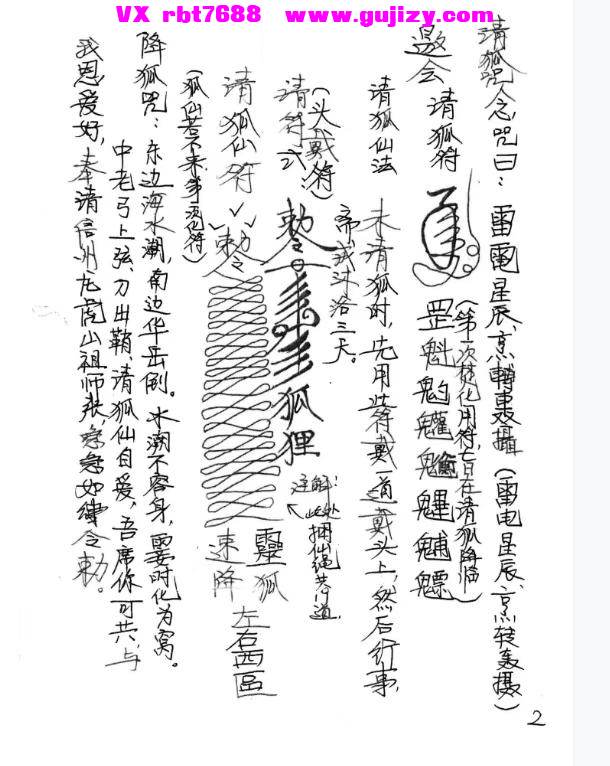 VX rbt7688 www.gujizy.com
请狐咒念,咒曰:雷電星辰、烹轉轟攝(雷电星辰、烹转轰摄)
(第一次焚化用符,旨在请狐降临)
邀会 请狐符 罡魁
请狐仙法 未请狐时,先用此符戴一道戴头上,然后行事,
斋戒沐浴三天。
(头戴符)
请符式: 勅令 狐狸
注解:
此处捆仙绳共 道,
请狐仙符 勅令 靈狐 速降 左右西區
(狐仙若不来争 此符)
降狐咒:东边海水潮,南边华岳倒。水潮不容身,霎时化为窝。
中老弓上弦、刀出鞘、请狐仙自爱,吾席你可共、与
我恩爱好,奉请信州龙虎山祖师张,急急如律令勅。
2